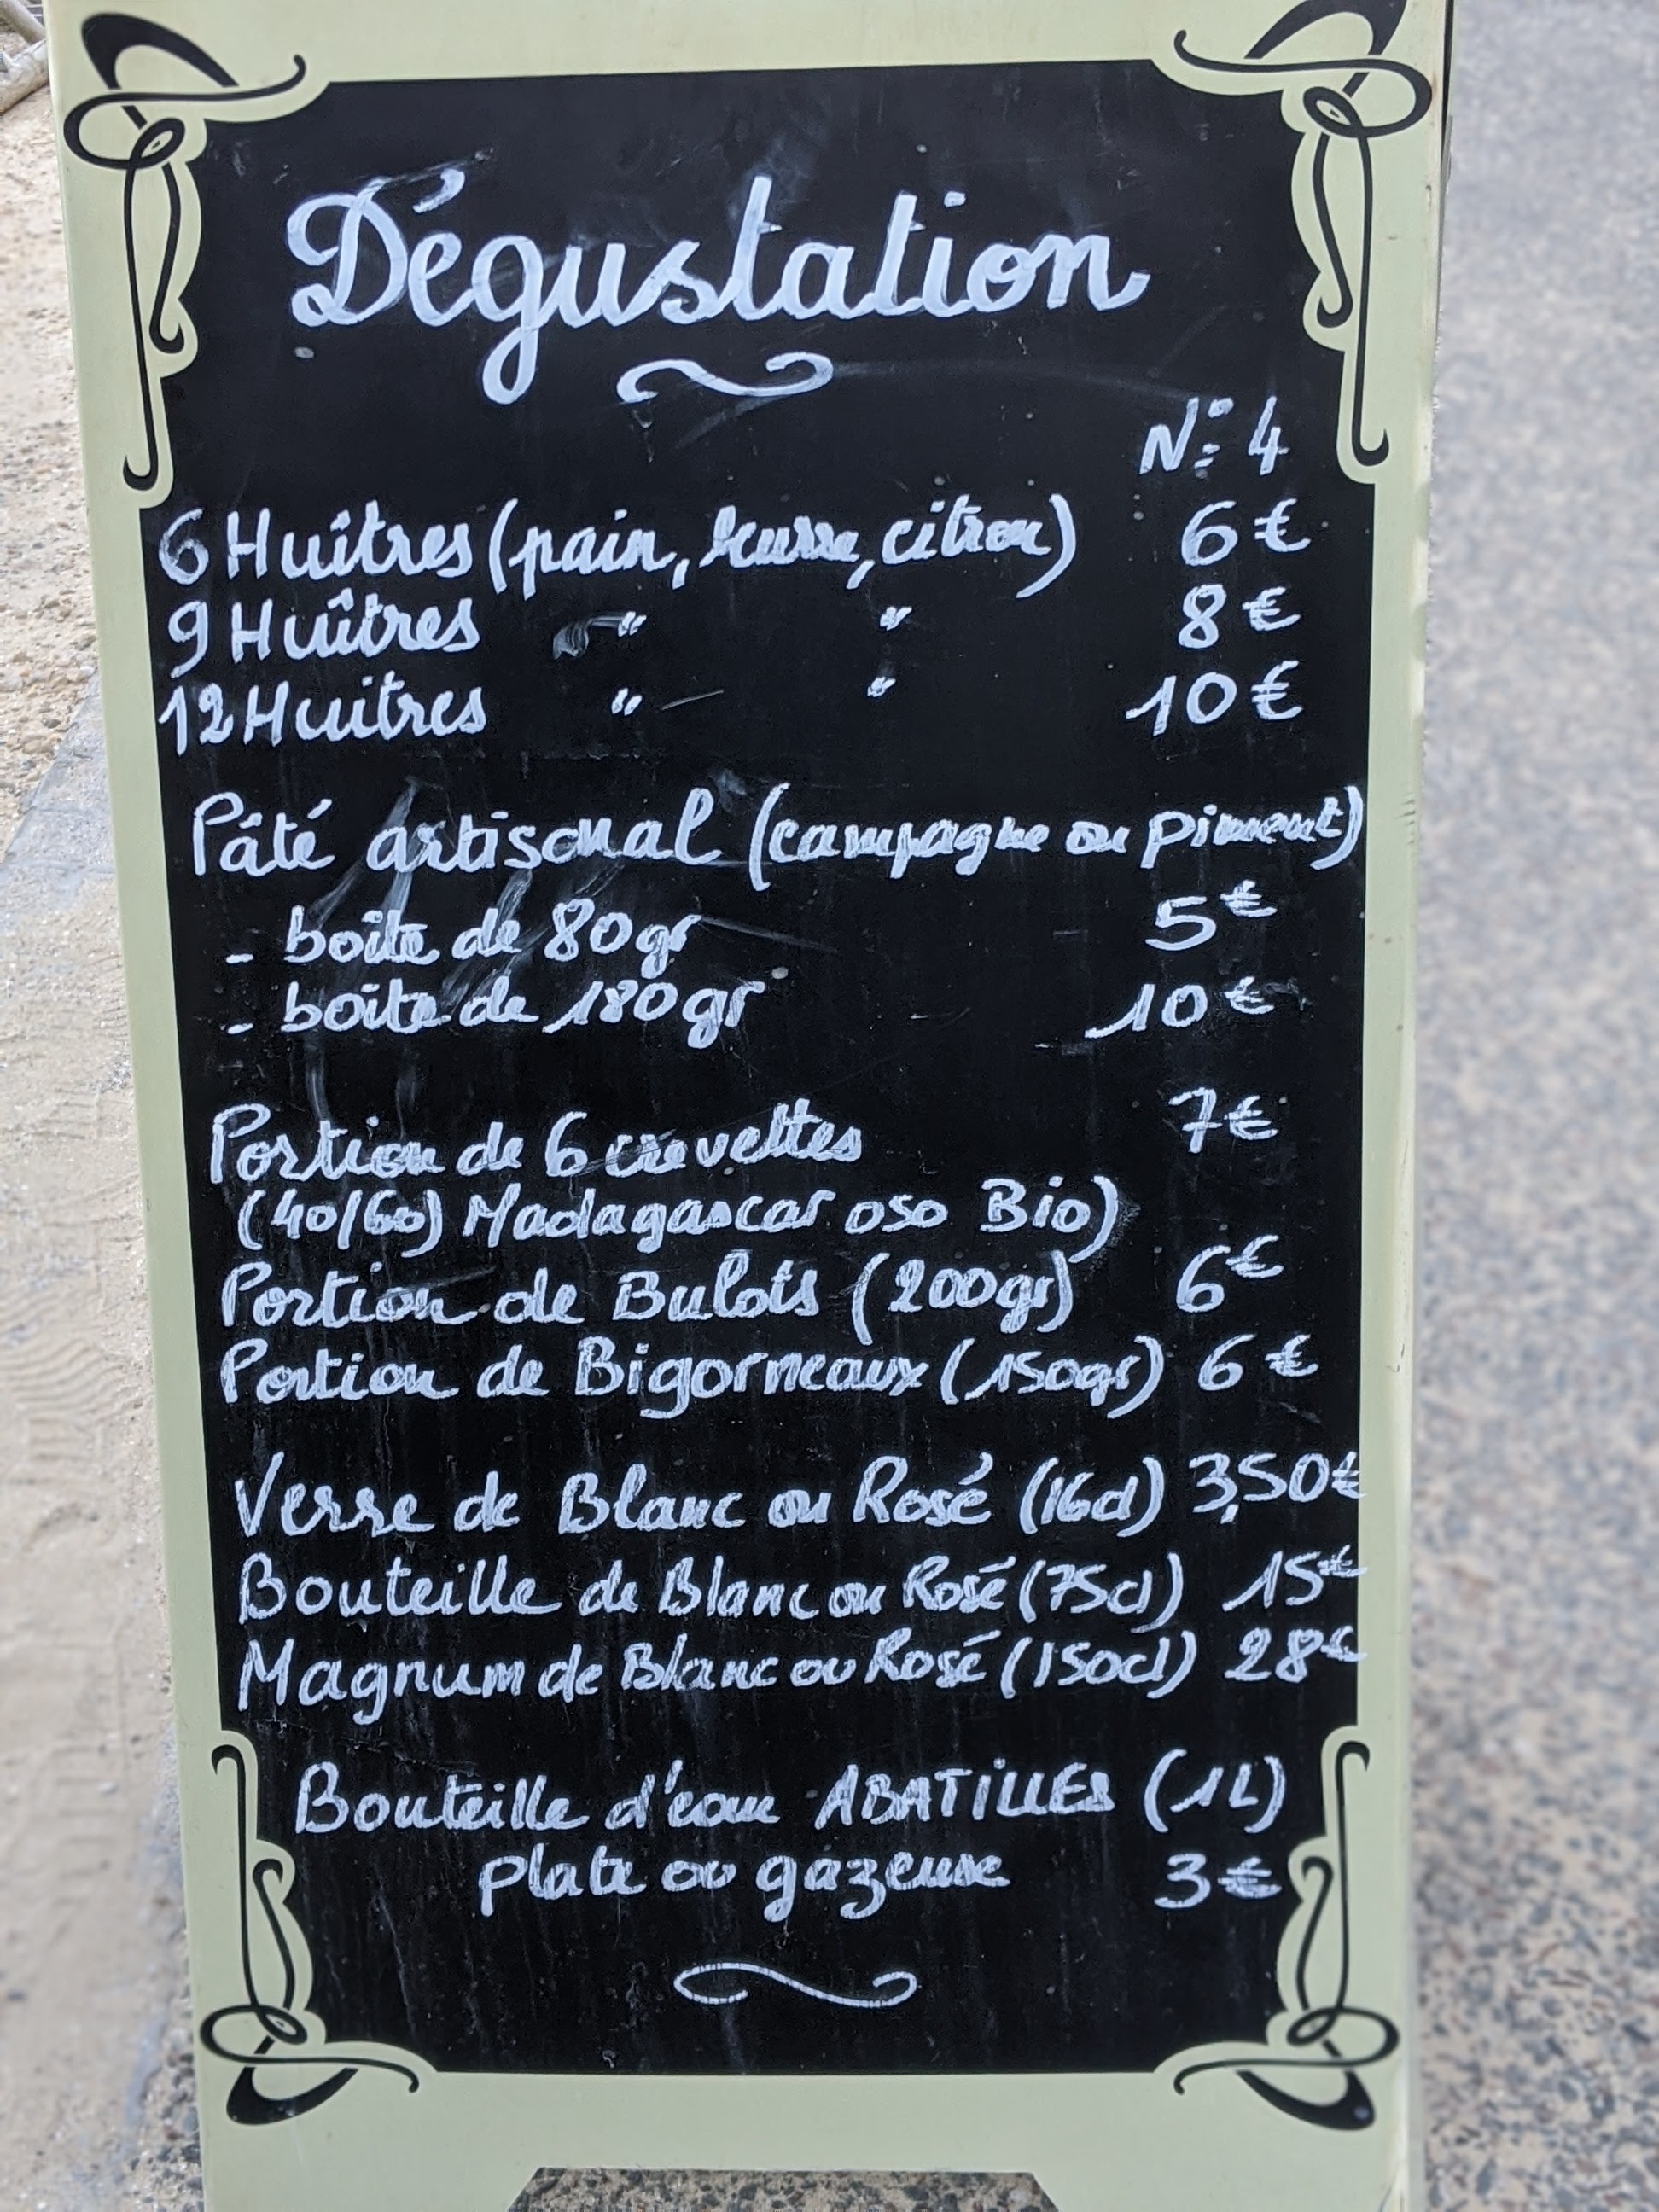 Dégustation
N°: 4
6 Huîtres (pain, beurre, citron) 6€
9 Huîtres " " 8€
12 Huitres " " 10€
Pâté artisanal (campagne ou piment)
- boîte de 80gr 5€
- boîte de 180gr 10€
Portion de 6 crevettes 7€
(40/60) Madagascar oso Bio)
Portion de Bulots (200gr) 6€
Portion de Bigorneaux (150gr) 6€
Verre de Blanc ou Rosé (16cl) 3,50€
Bouteille de Blanc ou Rosé (75cl) 15€
Magnum de Blanc ou Rosé (150cl) 28€
Bouteille d'eau ABATiLLES (1L)
plate ou gazeuse 3€